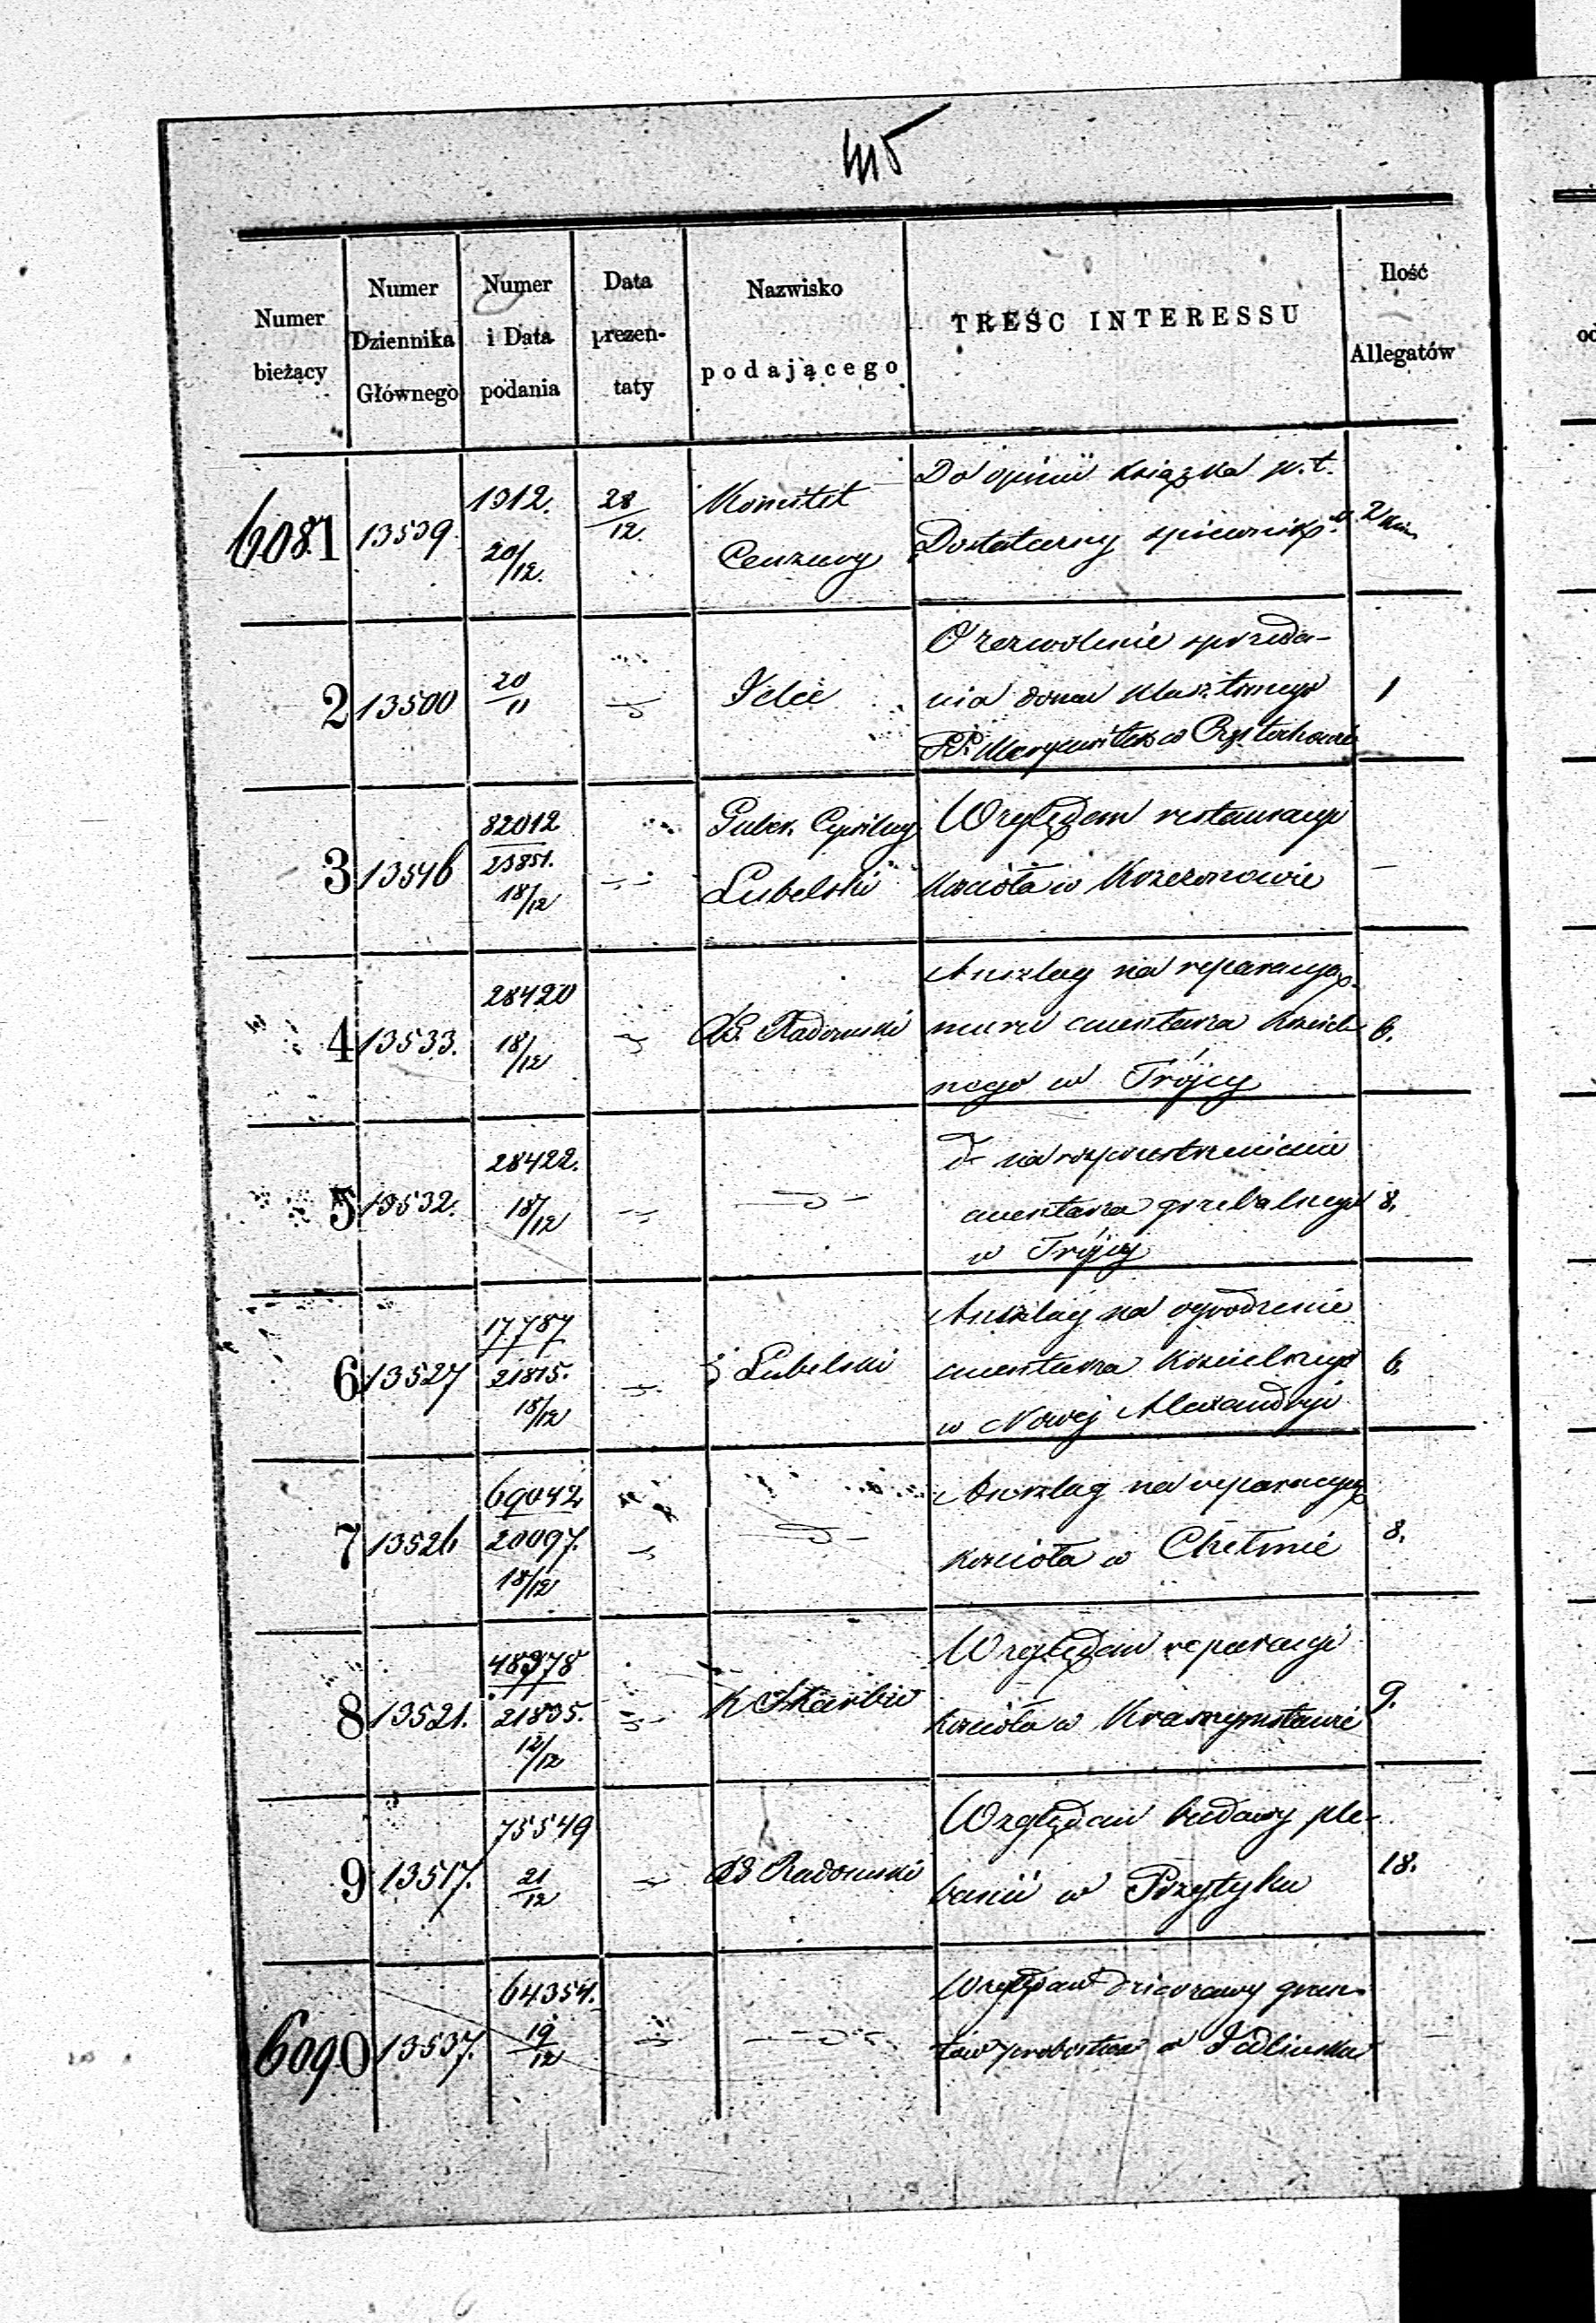 Numer bieżący
Numer Dziennika Głównego
Numer i Data podania
Data prezentaty
Nazwisko podającego
TREŚC INTERESSU
Ilość Allegatów
6081
13539
1912.
20/12.
28/12.
Komitet
Cenzury
Do opinii książka p.t.
Dostateczny śpiewnik
2
2
13500
20/11
O zezwolenie sprzeda-
nia domu klasztornego
PP. Maryawitek w Częstochowie
1
3
13546
82012
23851.
18/12
Guber. Cywilny
Lubelski
Względem restauracyi
kościoła w
4
13533.
28420
18/12
Radomski
Anszlag na reparacyą
muru cmentarza kościel
nego w Trójcy
6.
5
13532.
28422.
18/12
na rozprzestrzenienie
cmentarza grzebalnego
w Trójcy
8.
6
13527
17787
21815.
18/12
Lubelski
Anszlag na ogrodzenie
cmentarza kościelnego
w Nowej Alexandryi
6.
7
13526
69042
20097.
18/12
Anszlag na reparacyą
kościoła w Chełmie
8.
8
13521.
48978
21835.
12/12
K Skarbu
Względem reparacyi
kościoła w Krasnymstawie
9.
9
13517.
75549
21/12
Radomski
Względem budowy ple-
banii w Przytyku
18.
6090
13537.
64354.
19/12
Względem dzierżawy grun-
tów probostwa w Jedlińsku